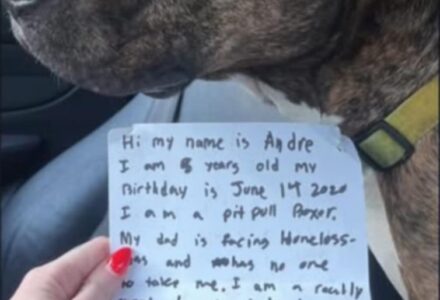 Hi my name is Andre
I am 5 years old my
Birthday is June 14 2020
I am a pit pull Boxer.
My dad is facing Homeless-
ness and has no one
to take me. I am a really